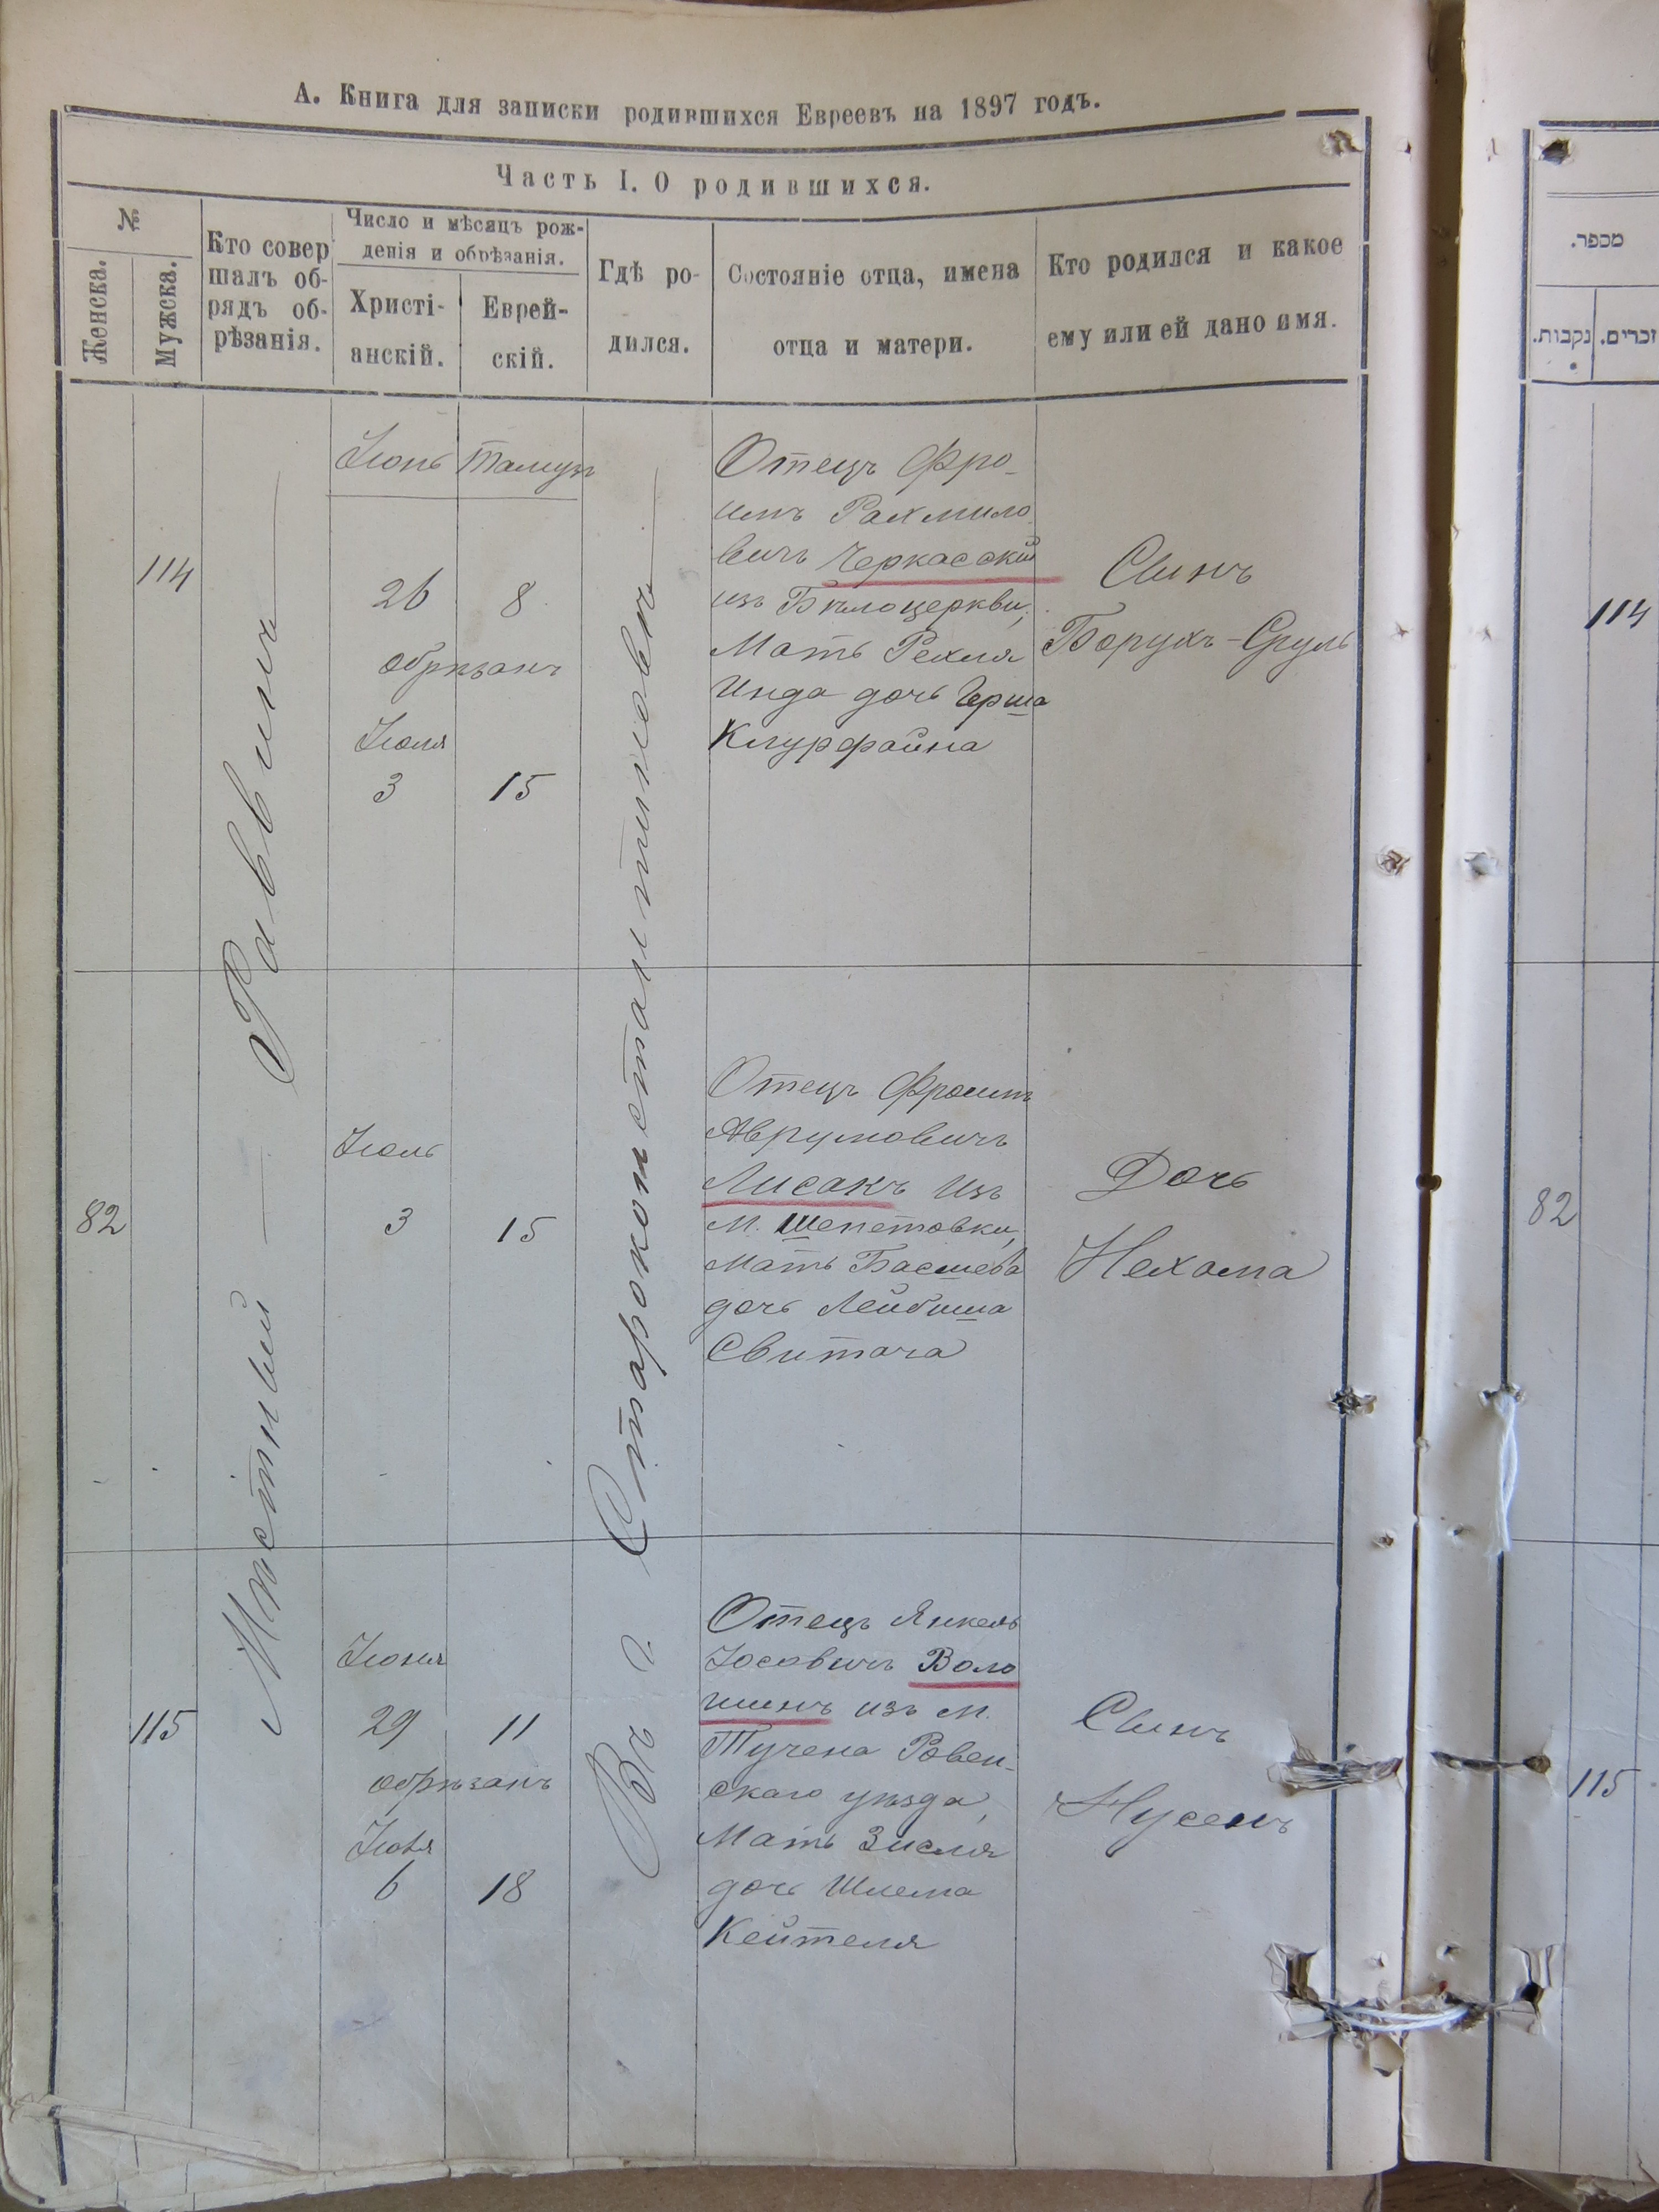 А. Книга для записки родившихся Евреевъ на 1897 годъ.
Часть I. О родившихся.
№
Женска.
Мужска.
Кто совер
шалъ об-
рядъ об-
рѣзанія.
Число и мѣсяцъ рож-
денія и обрѣзанія.
Христі-
анскій.
Еврей-
скій.
Гдѣ ро-
дился.
Состояніе отца, имена
отца и матери.
Кто родился и какое
ему или ей дано имя.
Мѣстный — Раввинъ —
Въ г. Староконстантиновѣ
114
Іюнь
Тамузъ
26
8
обрѣзанъ
Іюля
3
15
Отецъ Фро-
имъ Рахмило
вичъ Черкасскій
изъ Бѣлоцеркви,
Мать Рехля
Инда дочь Герша
Клурфайна
Сынъ
Борухъ-Сруль
82
Іюль
3
15
Отецъ Фроимъ
Аврумовичъ
Лисакъ изъ
м. Шепетовки,
Мать Басшева
дочь Лейбиша
Свитача
Дочь
Нехама
115
Іюня
29
11
обрѣзанъ
Іюля
6
18
Отецъ Янкель
Іосевичъ Воло
шинъ изъ м.
Тучена Ровен-
скаго уѣзда,
Мать Зисля
дочь Шлема
Кейтеля
Сынъ
Нусенъ
מכפר.
נקבות.
זכרים.
114
82
115